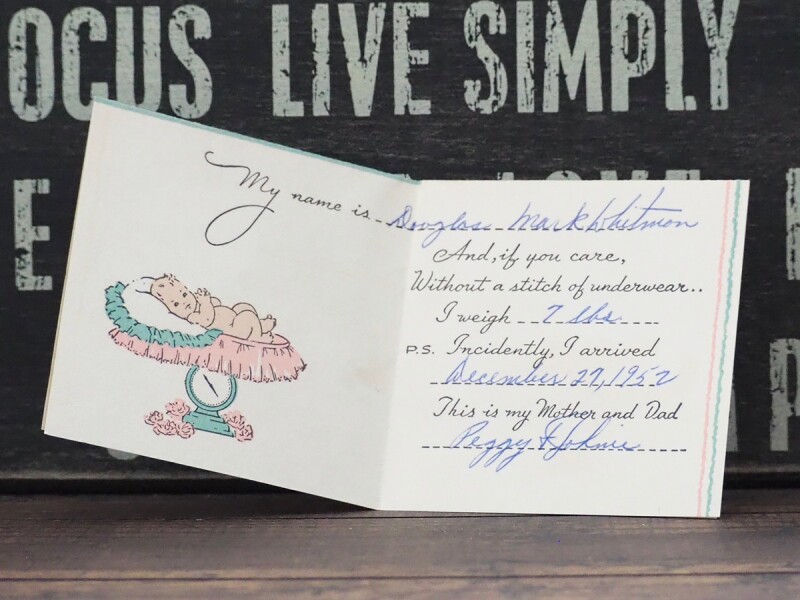 OCUS LIVE SIMPLY
My name is Douglas Mark Whitmon
And, if you care,
Without a stitch of underwear..
I weigh 7 lbs
P.S. Incidently, I arrived
December 27, 1952
This is my Mother and Dad
Peggy & Johnie